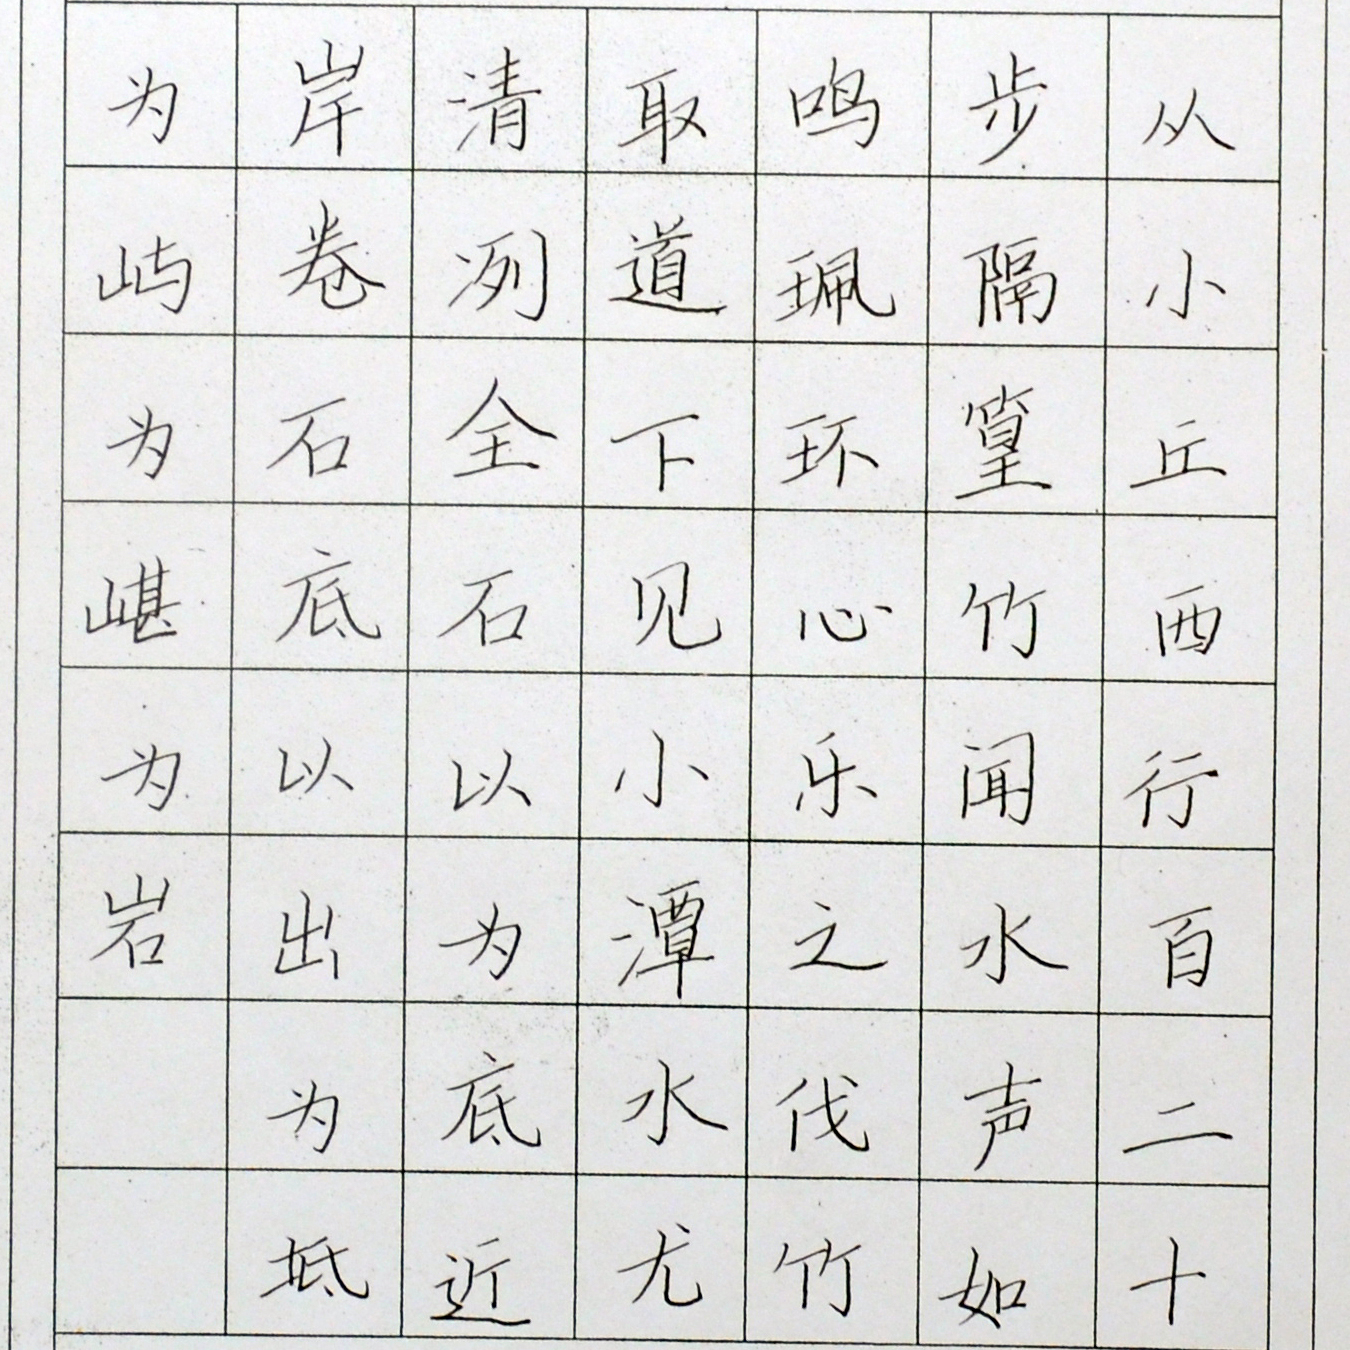 从小丘西行百二十
步隔篁竹闻水声如
鸣珮环心乐之伐竹
取道下见小潭水尤
清冽全石以为底近
岸卷石底以出为坻
为屿为嵁为岩